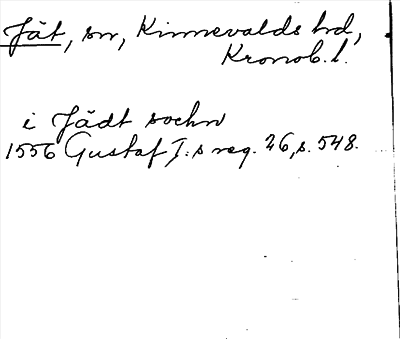 Jät, sn, Kinnevalds hd,
Kronob. l.
i Jädt sochn
1556 Gustaf I:s reg. 26, s. 548.